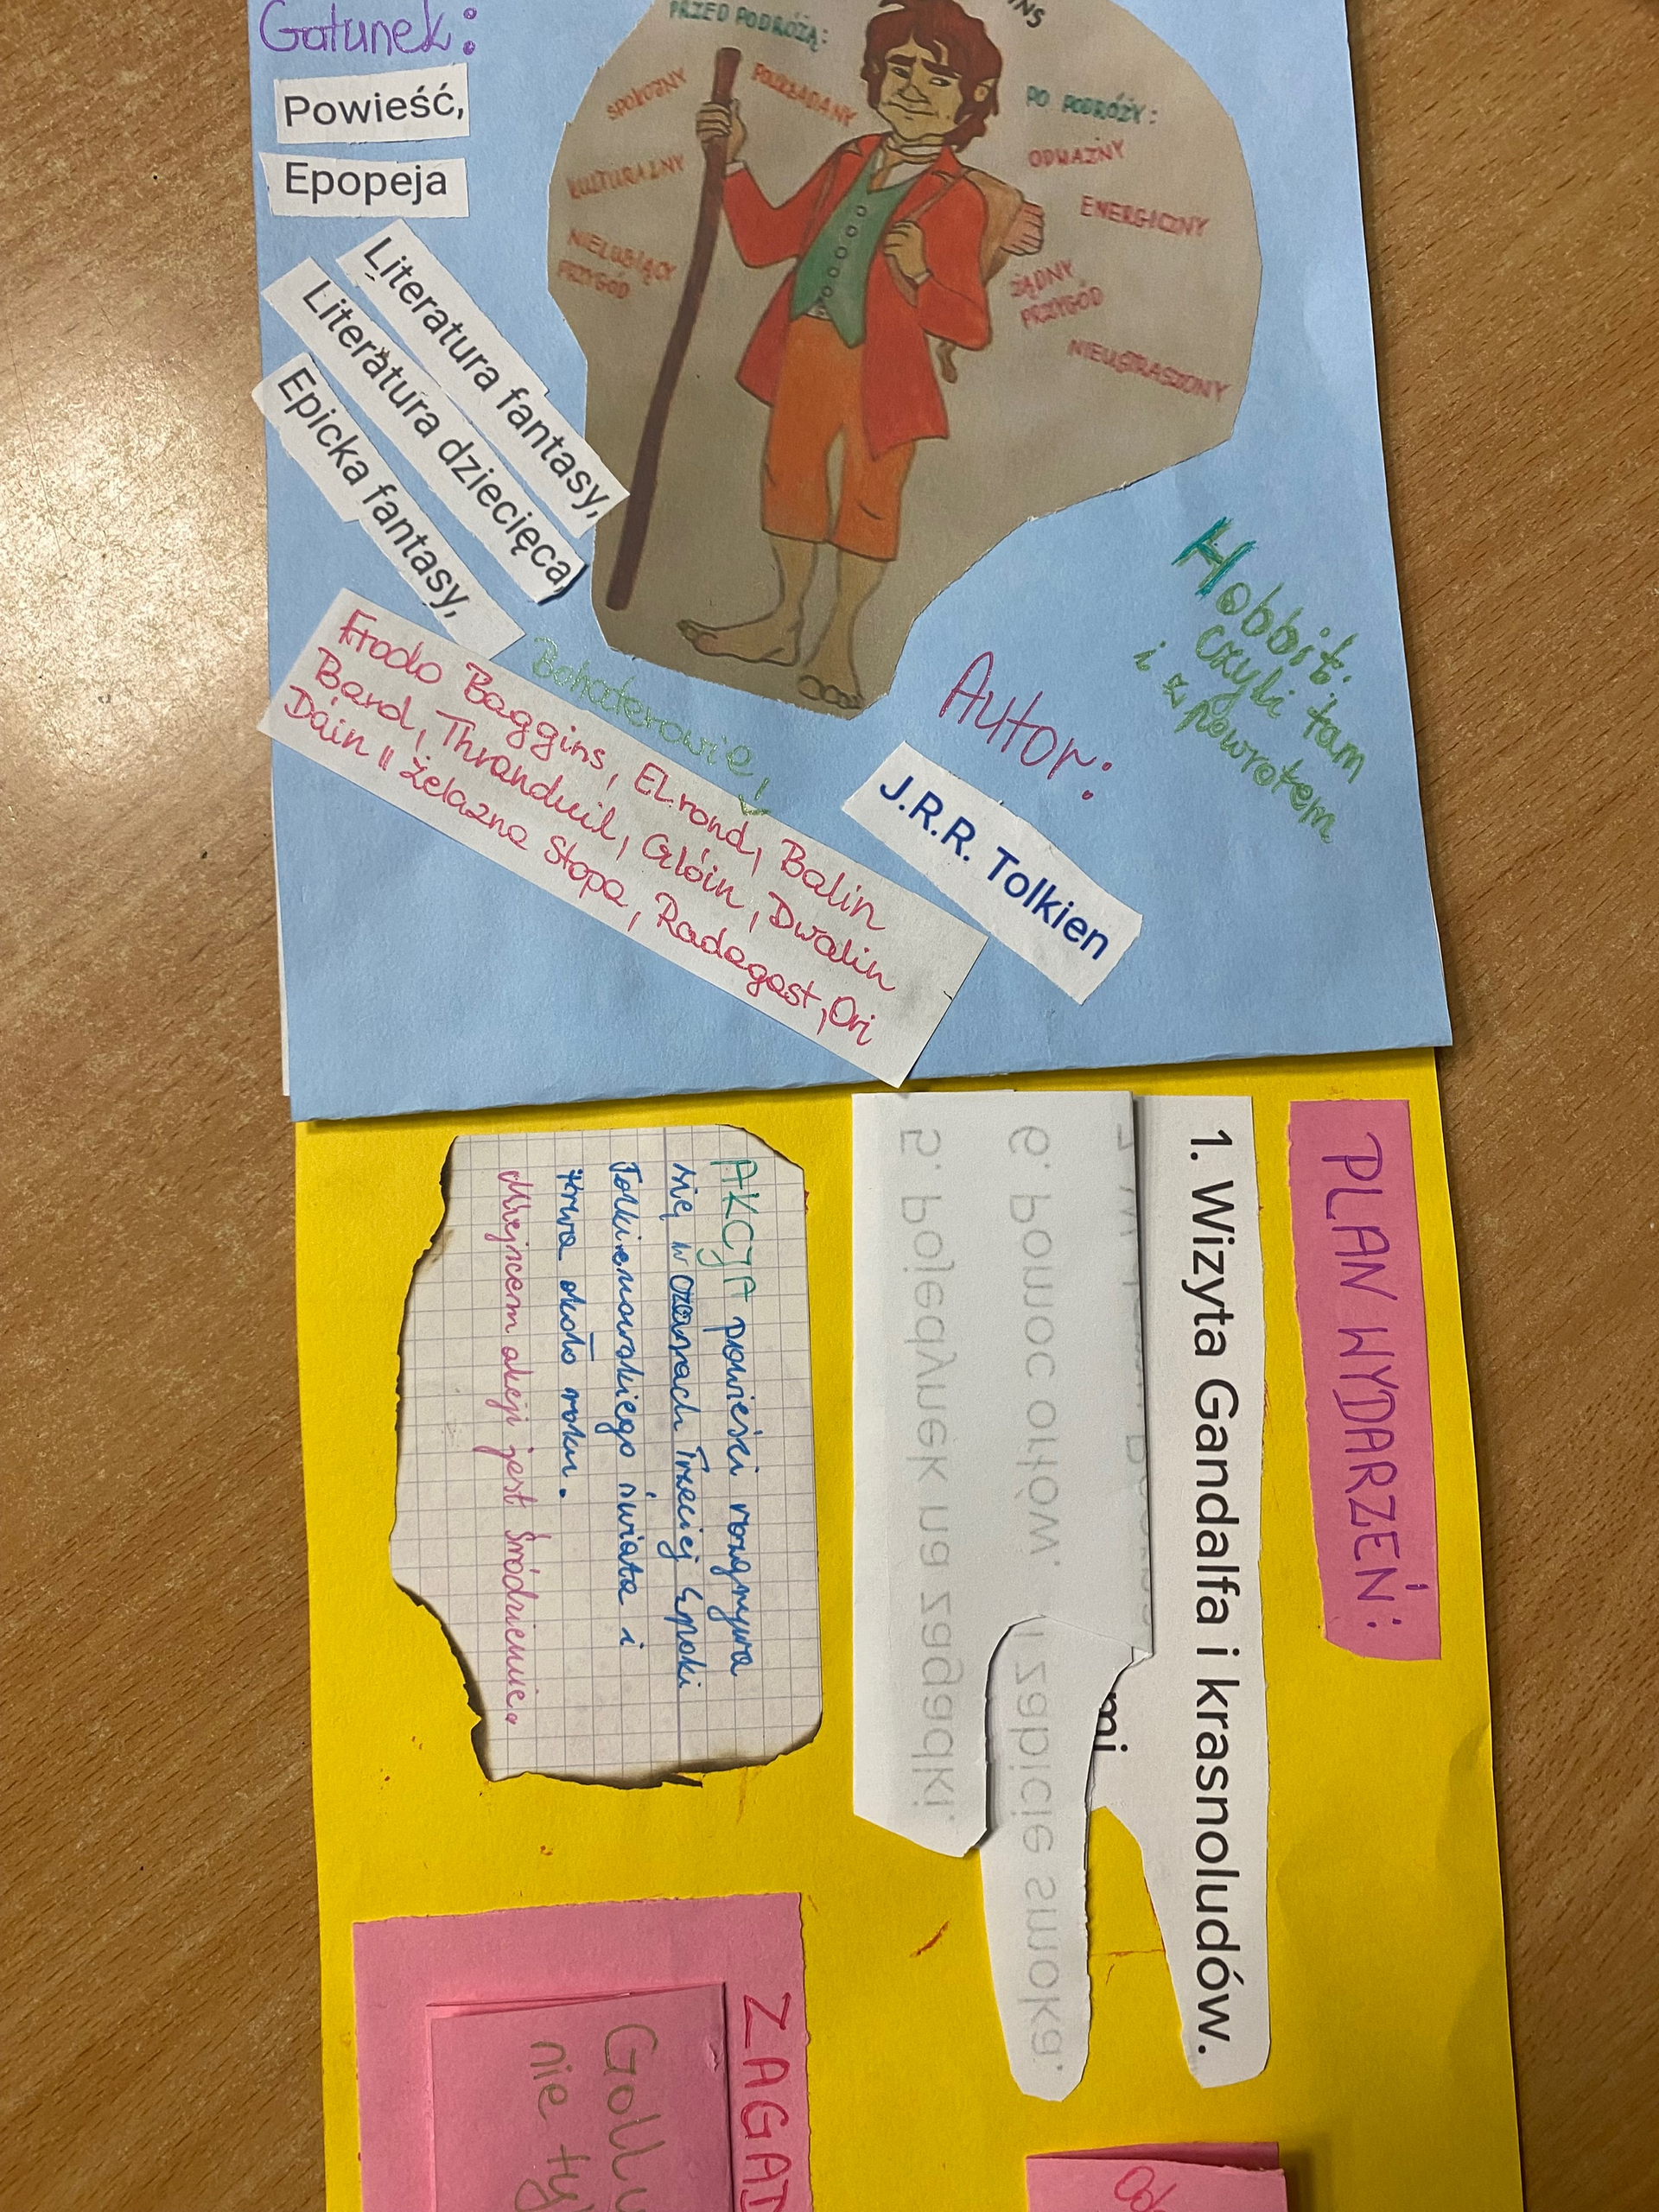 Gatunek:
Powieść,
Epopeja
Literatura fantasy,
Literatura dziecięca,
Epicka fantasy,
PRZED PODRÓŻĄ:
SPOKOJNY
POUKŁADANY
KULTURALNY
NIELUBIĄCY
PRZYGÓD
PO PODRÓŻY:
ODWAŻNY
ENERGICZNY
ŻĄDNY
PRZYGÓD
NIEUSTRASZONY
Hobbit.
czyli tam
i z powrotem
Autor:
J.R.R. Tolkien
Bohaterowie!
Frodo Baggins, ELrond, Balin
Bard, Thranduil, Glóin, Dwalin
Dáin II Żelazna Stopa, Radagast, Ori
PLAN WYDARZEŃ:
1. Wizyta Gandalfa i krasnoludów.
mi
6. pomoc orłów. i zabicie smoka.
5. pojedynek na zagadki.
AKCJA powieści rozgrywa
się w czasach Trzeciej Epoki
Tolkienowskiego świata i
trwa około roku.
Miejscem akcji jest Śródziemie.
ZAGAD
Gollu
nie ty